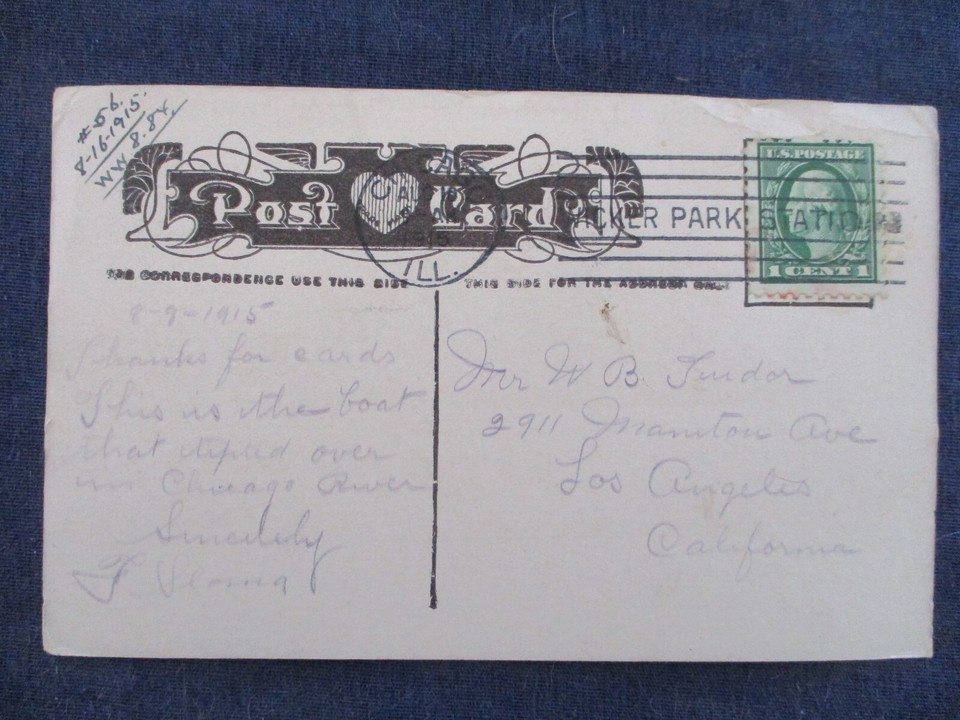 #56.
8-16-1915.
WW 8.84.
Post Card
CHICAGO
1915
ILL.
WICKER PARK STATION
U.S. POSTAGE
1 CENT 1
FOR CORRESPONDENCE USE THIS SIDE
THIS SIDE FOR THE ADDRESS ONLY
8-9-1915
Thanks for cards
This is the boat
that tipied over
in Chicago River
Sincerely
F.
Mr W B Tudor
2911 Maniton Ave
Los Angeles
California